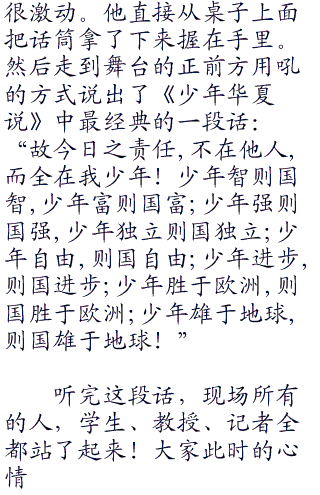 很激动。他直接从桌子上面
把话筒拿了下来握在手里。
然后走到舞台的正前方用吼
的方式说出了《少年华夏
说》中最经典的一段话：
“故今日之责任,不在他人,
而全在我少年！少年智则国
智,少年富则国富;少年强则
国强,少年独立则国独立;少
年自由,则国自由;少年进步,
则国进步;少年胜于欧洲,则
国胜于欧洲;少年雄于地球,
则国雄于地球！”
听完这段话，现场所有
的人，学生、教授、记者全
都站了起来！大家此时的心
情